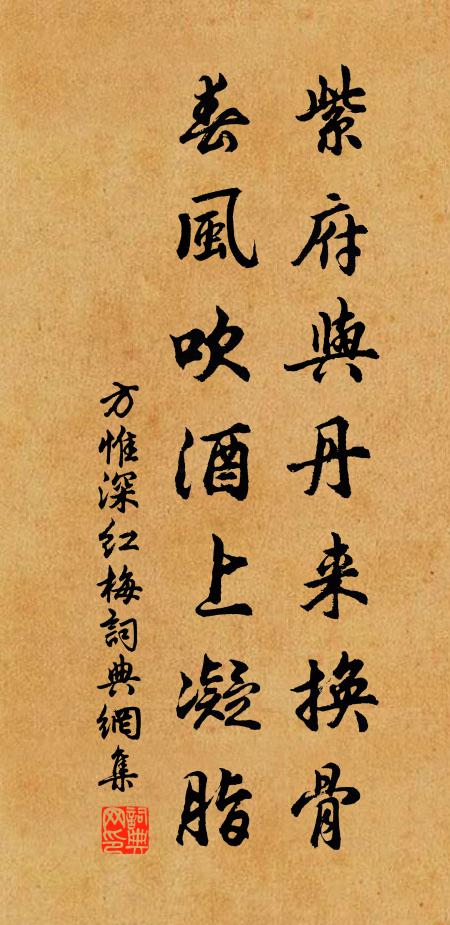 紫府與丹来換骨
春風吹酒上凝脂
方惟深红梅詞典網集
詞典网印